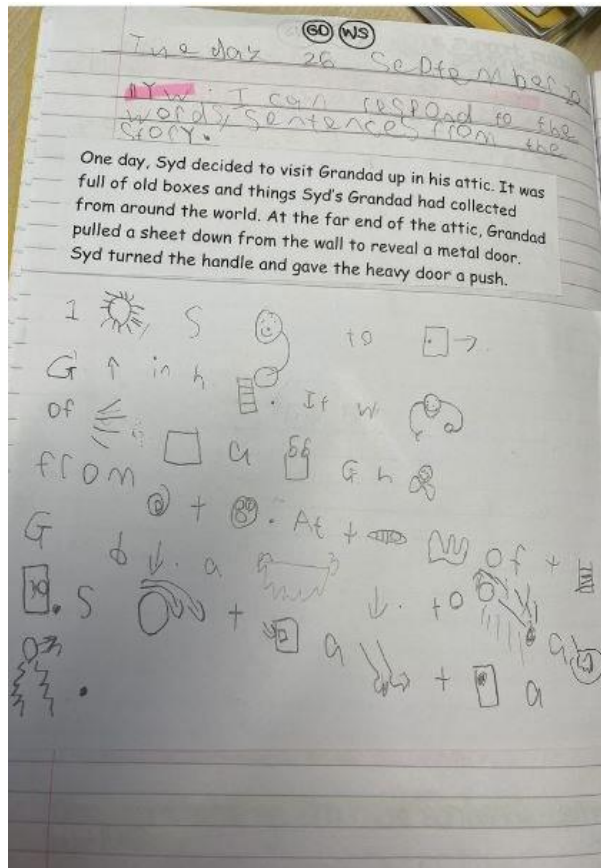 GD WS
Tueday 26 September
I can respond to the
words/sentences from the
story.
One day, Syd decided to visit Grandad up in his attic. It was
full of old boxes and things Syd's Grandad had collected
from around the world. At the far end of the attic, Grandad
pulled a sheet down from the wall to reveal a metal door.
Syd turned the handle and gave the heavy door a push.
1 S to
G in h . It w
of a G h
from + . At + of +
G a . to a
. S + a + a
.